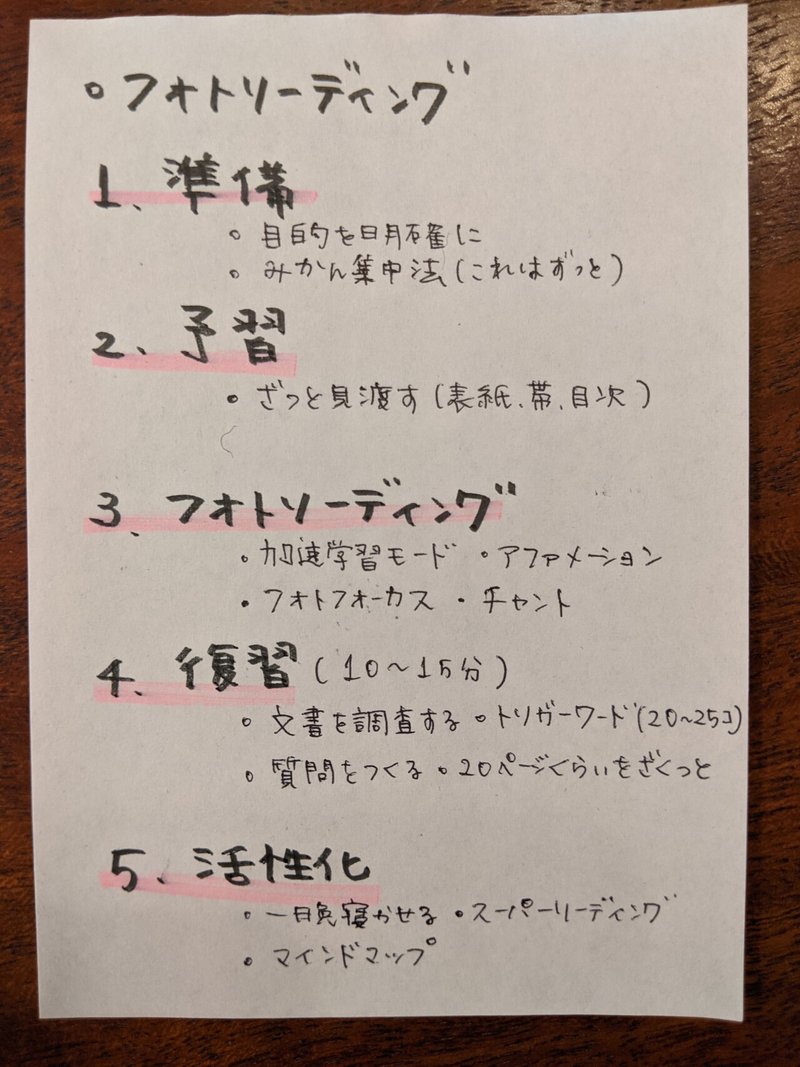 ○フォトリーディング
1、準備
○目的を明確に
○みかん集中法(これはずっと)
2、予習
・ざっと見渡す(表紙、帯、目次)
3、フォトリーディング
・加速学習モード ・アファメーション
・フォトフォーカス ・チャント
4、復習(10〜15分)
○文書を調査する ○トリガーワード(20〜25コ)
○質問をつくる ○20ページくらいをざくっと
5、活性化
○一晩寝かせる ○スーパーリーディング
○マインドマップ